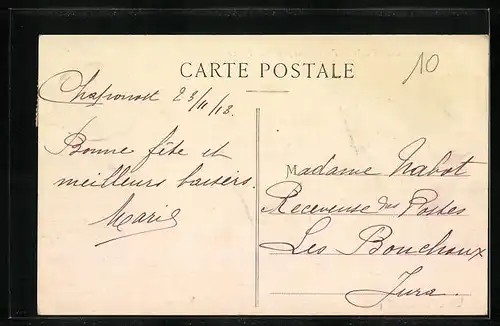 CARTE POSTALE
10
Chaponost 23/11/13.
Bonne fête et
meilleurs baisers.
Marie
Madame Nabot
Receveuse des Postes
Les Bouchoux
Jura.